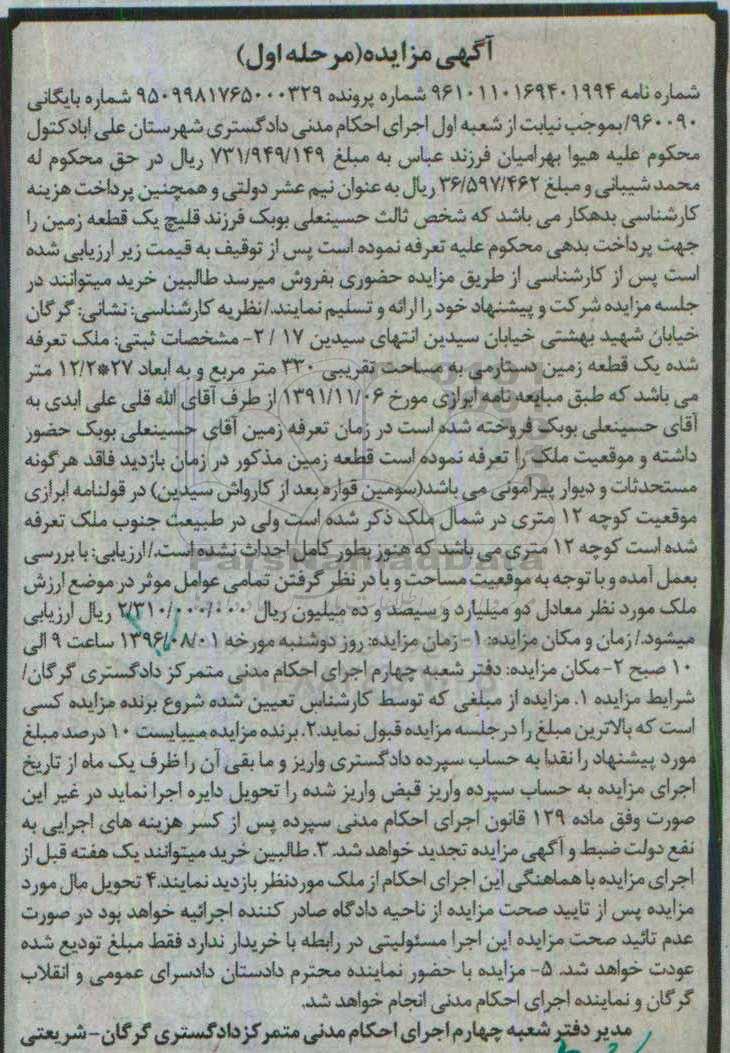 آگهی مزایده(مرحله اول)
شماره نامه ۹۶۱۰۱۱۰۱۶۹۴۰۱۹۹۴ شماره پرونده ۹۵۰۹۹۸۱۷۶۵۰۰۰۳۲۹ شماره بایگانی
۹۶۰۰۹۰/بموجب نیابت از شعبه اول اجرای احکام مدنی دادگستری شهرستان علی ابادکتول
محکوم علیه هیوا بهرامیان فرزند عباس به مبلغ ۷۳۱/۹۴۹/۱۴۹ ریال در حق محکوم له
محمد شیبانی و مبلغ ۳۶/۵۹۷/۴۶۲ ریال به عنوان نیم عشر دولتی و همچنین پرداخت هزینه
کارشناسی بدهکار می باشد که شخص ثالث حسینعلی بوبک فرزند قلیچ یک قطعه زمین را
جهت پرداخت بدهی محکوم علیه تعرفه نموده است پس از توقیف به قیمت زیر ارزیابی شده
است پس از کارشناسی از طریق مزایده حضوری بفروش میرسد طالبین خرید میتوانند در
جلسه مزایده شرکت و پیشنهاد خود را ارائه و تسلیم نمایند./نظریه کارشناسی: نشانی: گرگان
خیابان شهید بهشتی خیابان سیدین انتهای سیدین ۱۷ / ۲- مشخصات ثبتی: ملک تعرفه
شده یک قطعه زمین دستارمی به مساحت تقریبی ۳۳۰ متر مربع و به ابعاد ۲۷*۱۲/۲ متر
می باشد که طبق مبایعه نامه ابرازی مورخ ۱۳۹۱/۱۱/۰۶ از طرف آقای الله قلی علی ابدی به
آقای حسینعلی بوبک فروخته شده است در زمان تعرفه زمین آقای حسینعلی بوبک حضور
داشته و موقعیت ملک را تعرفه نموده است قطعه زمین مذکور در زمان بازدید فاقد هرگونه
مستحدثات و دیوار پیرامونی می باشد(سومین قواره بعد از کارواش سیدین) در قولنامه ابرازی
موقعیت کوچه ۱۲ متری در شمال ملک ذکر شده است ولی در طبیعت جنوب ملک تعرفه
شده است کوچه ۱۲ متری می باشد که هنوز بطور کامل احداث نشده است./ارزیابی: با بررسی
بعمل آمده و با توجه به موقعیت مساحت و با در نظر گرفتن تمامی عوامل موثر در موضع ارزش
ملک مورد نظر معادل دو میلیارد و سیصد و ده میلیون ریال ۲/۳۱۰/۰۰۰/۰۰۰ ریال ارزیابی
میشود./ زمان و مکان مزایده: ۱- زمان مزایده: روز دوشنبه مورخه ۱۳۹۶/۰۸/۰۱ ساعت ۹ الی
۱۰ صبح ۲- مکان مزایده: دفتر شعبه چهارم اجرای احکام مدنی متمرکز دادگستری گرگان/
شرایط مزایده ۱. مزایده از مبلغی که توسط کارشناس تعیین شده شروع برنده مزایده کسی
است که بالاترین مبلغ را درجلسه مزایده قبول نماید.۲. برنده مزایده میبایست ۱۰ درصد مبلغ
مورد پیشنهاد را نقدا به حساب سپرده دادگستری واریز و ما بقی آن را ظرف یک ماه از تاریخ
اجرای مزایده به حساب سپرده واریز قبض واریز شده را تحویل دایره اجرا نماید در غیر این
صورت وفق ماده ۱۲۹ قانون اجرای احکام مدنی سپرده پس از کسر هزینه های اجرایی به
نفع دولت ضبط و آگهی مزایده تجدید خواهد شد. ۳. طالبین خرید میتوانند یک هفته قبل از
اجرای مزایده با هماهنگی این اجرای احکام از ملک موردنظر بازدید نمایند.۴ تحویل مال مورد
مزایده پس از تایید صحت مزایده از ناحیه دادگاه صادر کننده اجرائیه خواهد بود در صورت
عدم تائید صحت مزایده این اجرا مسئولیتی در رابطه با خریدار ندارد فقط مبلغ تودیع شده
عودت خواهد شد. ۵- مزایده با حضور نماینده محترم دادستان دادسرای عمومی و انقلاب
گرگان و نماینده اجرای احکام مدنی انجام خواهد شد.
مدیر دفتر شعبه چهارم اجرای احکام مدنی متمرکز دادگستری گرگان-شریعتی
ParsNamadData